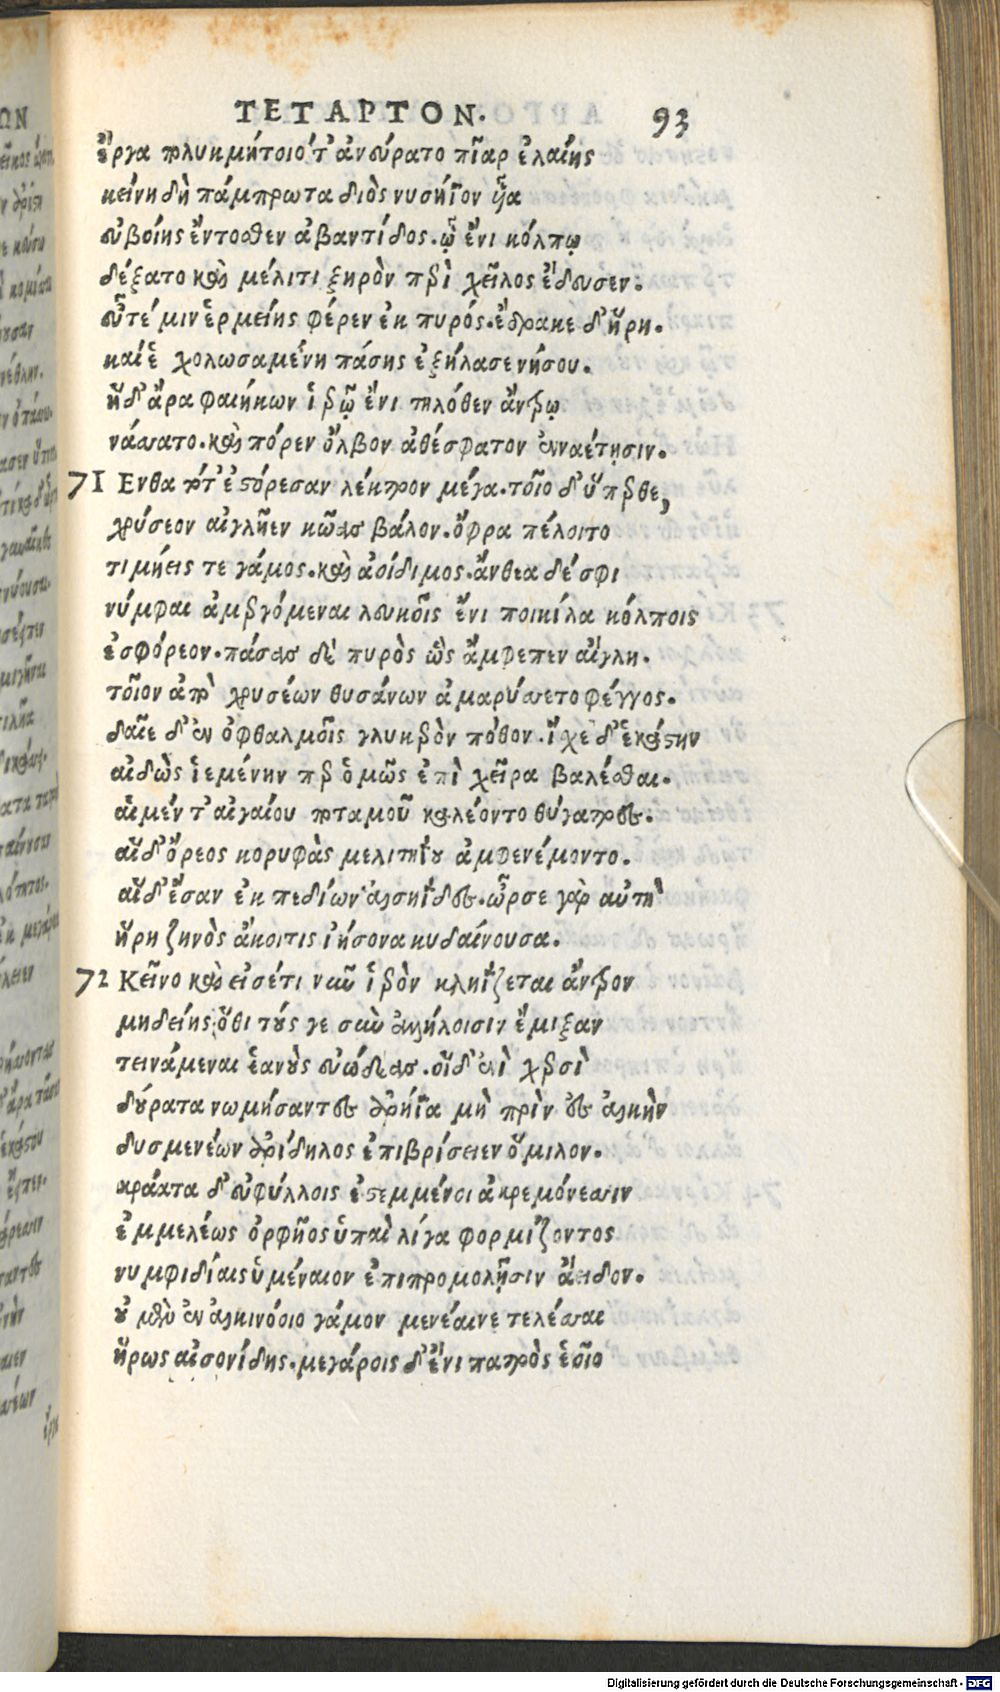 ΤΕΤΑΡΤΟΝ. 93
ἔργα πολυκμήτοιό τ' ἀνεύρατο πῖαρ ἐλαίης
κείνη δὴ πάμπρωτα διὸς νυσήϊον ἧα
εὐβοίης ἔντοσθεν ἀβαντίδος. ᾧ ἔνι κόλπῳ
δέξατο καὶ μέλιτι ξηρὸν περὶ χεῖλος ἔδευσεν.
εὖτέ μιν ἑρμείης φέρεν ἐκ πυρός. ἔδρακε δ' ἥρη.
καί ἑ χολωσαμένη πάσης ἐξήλασε νήσου.
ἥδ' ἄρα φαιήκων ἱερῷ ἔνι τηλόθεν ἄντρῳ
νάσσατο. καὶ πόρεν ὄλβον ἀθέσφατον ἐνναέτησιν.
71 Ενθα ποτ' ἐστόρεσαν λέκτρον μέγα. τοῖο δ' ὕπερθε,
χρύσεον αἰγλῆεν κῶας βάλον. ὄφρα πέλοιτο
τιμήεις τε γάμος. καὶ ἀοίδιμος. ἄνθεα δέ σφι
νύμφαι ἀμεργόμεναι λευκοῖς ἔνι ποικίλα κόλποις
ἐσφόρεον. πάσας δὲ πυρὸς ὣς ἄμφεπεν αἴγλη.
τοῖον ἀπὸ χρυσέων θυσάνων ἀμαρύσσετο φέγγος.
δαῖε δ' ἐν ὀφθαλμοῖς γλυκερὸν πόθον. ἴχε δ' ἑκάστην
αἰδὼς ἱεμένην περ ὁμῶς ἐπὶ χεῖρα βαλέσθαι.
αἱ μέν τ' αἰγαίου ποταμοῦ καλέοντο θύγατρες.
αἵ δ' ὄρεος κορυφὰς μελιτηΐου ἀμφενέμοντο.
αἵ δ' ἔσαν ἐκ πεδίων ἀλσηΐδες. ὦρσε γὰρ αὐτὴ
ἥρη ζηνὸς ἄκοιτις ἰήσονα κυδαίνουσα.
72 Κεῖνο καὶ εἰσέτι νῦν ἱερὸν κληΐζεται ἄντρον
μηδείης ὅθι τούς γε σὺν ἀλλήλοισιν ἔμιξαν
τεινάμεναι ἑανοὺς εὐώδεας. οἵ δ' ἐνὶ χερσὶ
δούρατα νωμήσαντες ἀρήϊα μὴ πρὶν ἐς ἀλκὴν
δυσμενέων ἀρίδηλος ἐπιβρίσειεν ὅμιλον.
κράατα δ' εὐφύλλοις ἐστεμμένοι ἀκρεμόνεσσιν
ἐμμελέως ὀρφῆος ὑπαὶ λίγα φορμίζοντος
νυμφιδίαις ὑμέναιον ἐπιπρομολῇσιν ἄειδον.
οὐ μὲν ἐν ἀλκινόοιο γάμον μενέαινε τελέσσαι
ἥρως αἰσονίδης. μεγάροις δ' ἔνι πατρὸς ἑοῖο
Digitalisierung gefördert durch die Deutsche Forschungsgemeinschaft - DFG